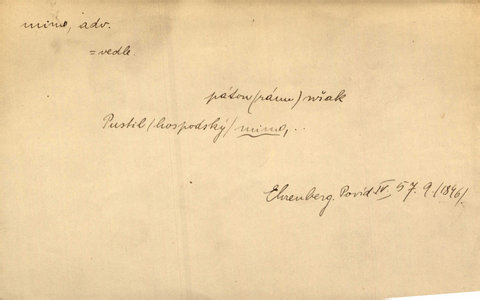 mimo, adv.
= vedle.
pátou (ránu) však
Pustil /hospodský/ mimo, ..
Ehrenberg. Povíd. IV. 57. 9. /1846/.